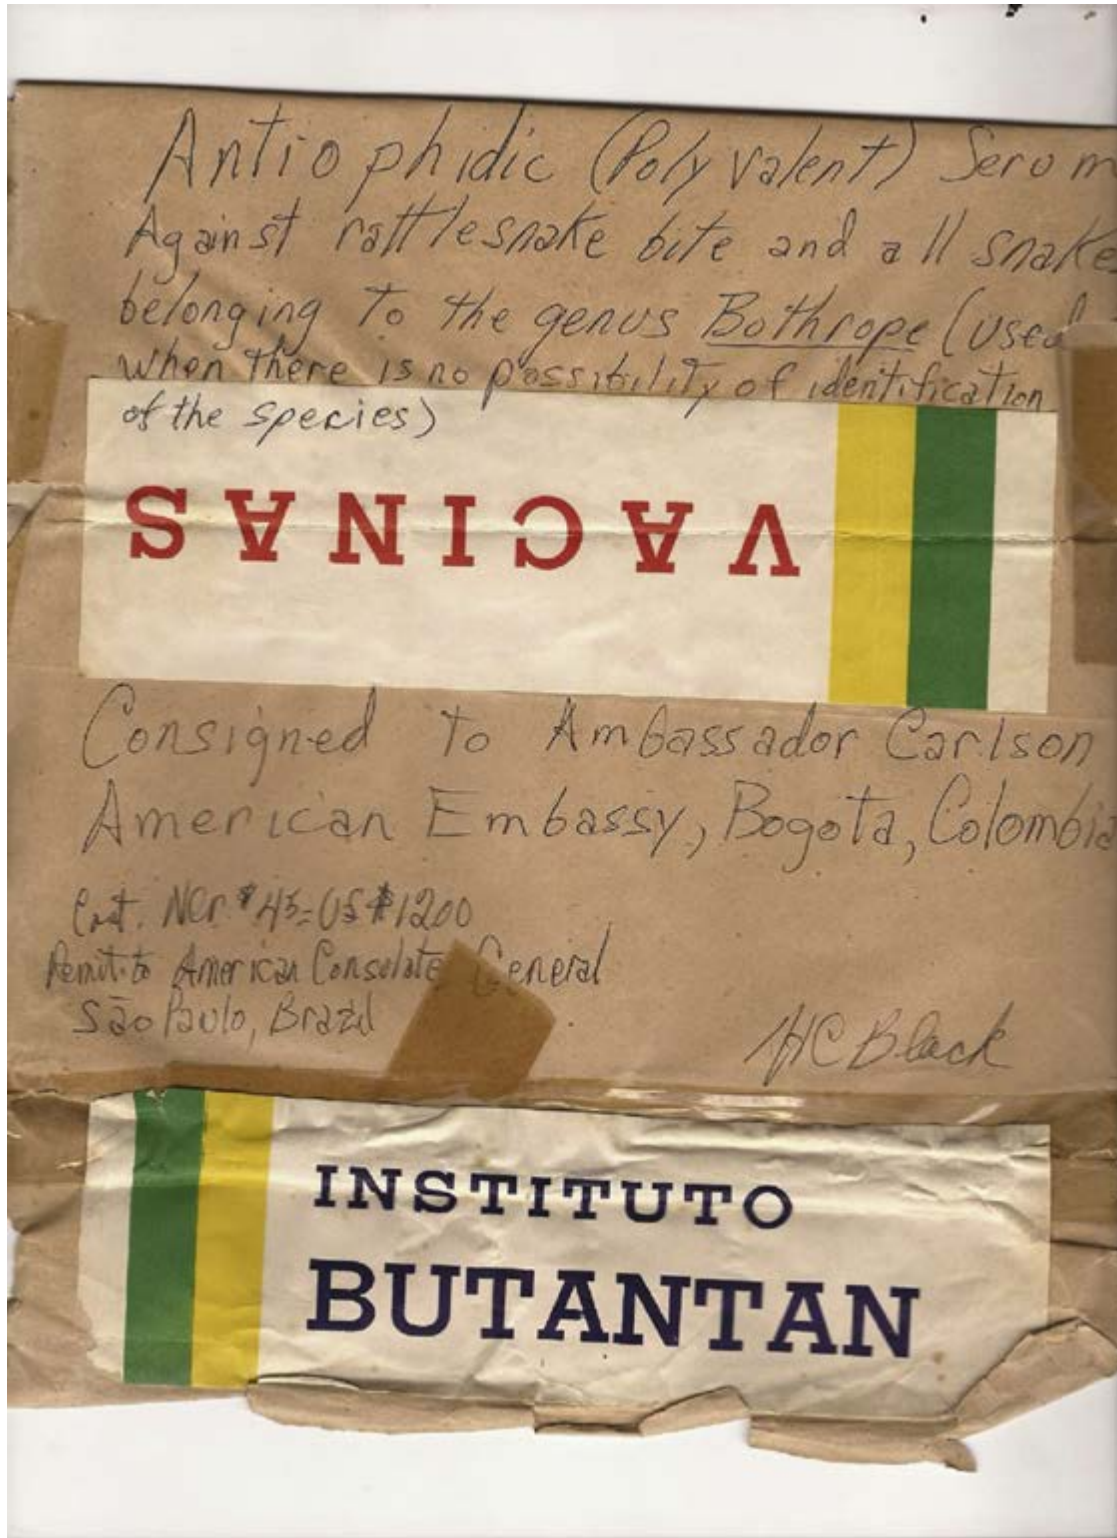 Antiophidic (Polyvalent) Serum
Against rattlesnake bite and all snakes
belonging to the genus Bothrope (used
when there is no possibility of identification
of the species)
VACINAS
Consigned to Ambassador Carlson
American Embassy, Bogota, Colombia
Cost. NCr.$45=US$1200
Remit to American Consolate General
São Paulo, Brazil
HC Black
INSTITUTO
BUTANTAN